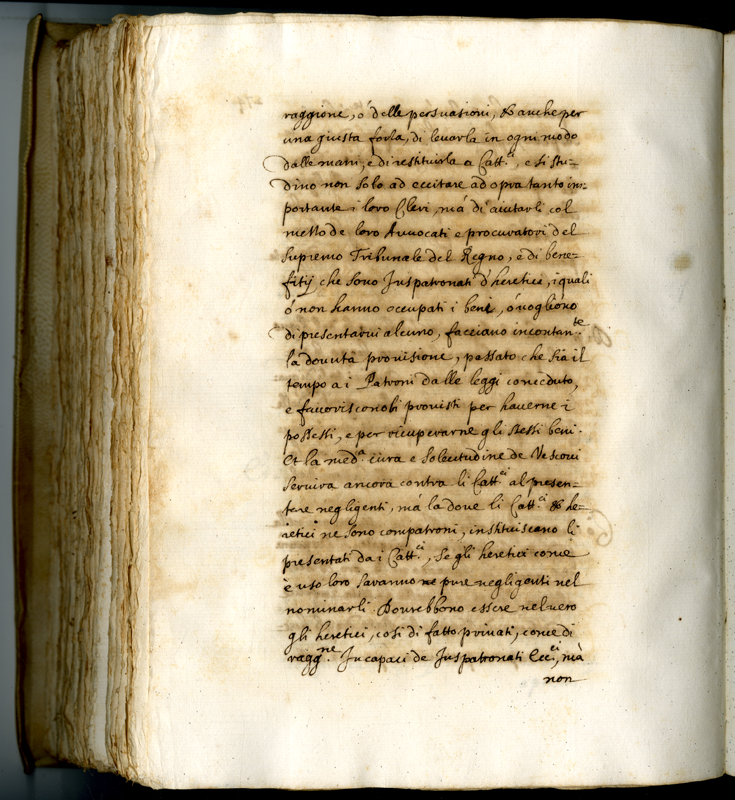 raggione, ó delle persuasioni, & anche per
una giusta forza, di levarla in ogni modo
dalle mani, e di restituirla a Catt.ci, e si stu=
dino non solo ad eccitare ad opra tanto im=
portante i loro Cleri, má di aiutarli col
mezzo de loro Avvocati e procuratori del
supremo Tribunale del Regno, e di bene=
fitij che sono Juspatronati d'heretici, i quali
ó non hanno occupati i beni, ó vogliono
di presentarvi alcuno, facciano incontan.te
la dovuta provisione, passato che sia il
tempo a i Patroni dalle leggi conceduto,
e favoriscono li provisti per haverne i
possessi, e per ricuperarne gli stessi beni.
Et la med.a cura e solecitudine de Vescovi
servira ancora contra li Catt.ci al presen=
tare negligenti, má la dove li Catt.ci & he=
retici ne sono compatroni, instituiscano li
presentati da i Catt.ci, se gli heretici come
è uso loro saranno ne pure negligenti nel
nominarli. Dovrebbono essere nel vero
gli heretici, cosi di fatto privati, come di
ragg.ne Incapaci de Juspatronati Ecc.ci, má
non